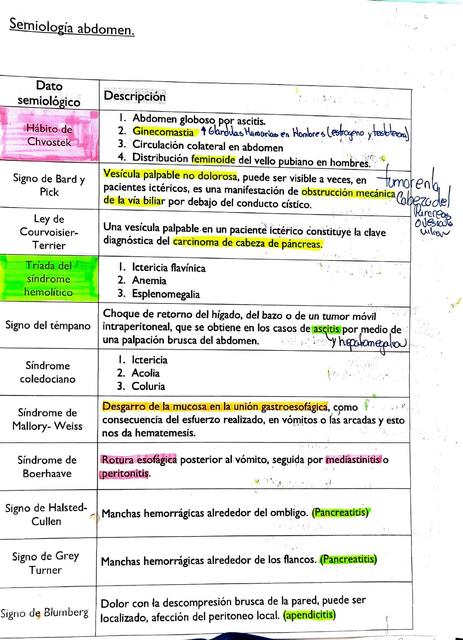 Semiología abdomen.
Dato
semiológico
Descripción
Hábito de
Chvostek
1. Abdomen globoso por ascitis.
2. Ginecomastia ↑ Glandulas Mamarias en Hombres (estrogeno y testosterona)
3. Circulación colateral en abdomen
4. Distribución feminoide del vello pubiano en hombres.
Signo de Bard y
Pick
Vesícula palpable no dolorosa, puede ser visible a veces, en
pacientes ictéricos, es una manifestación de obstrucción mecánica
de la vía biliar por debajo del conducto cístico.
tumor en la
Cabeza del
Pancreas
o vesicula
Ley de
Courvoisier-
Terrier
Una vesícula palpable en un paciente ictérico constituye la clave
diagnóstica del carcinoma de cabeza de páncreas.
Tríada del
síndrome
hemolítico
1. Ictericia flavínica
2. Anemia
3. Esplenomegalia
Signo del témpano
Choque de retorno del hígado, del bazo o de un tumor móvil
intraperitoneal, que se obtiene en los casos de ascitis por medio de
una palpación brusca del abdomen.
y hepatomegalia
Síndrome
coledociano
1. Ictericia
2. Acolia
3. Coluria
Síndrome de
Mallory- Weiss
Desgarro de la mucosa en la unión gastroesofágica, como
consecuencia del esfuerzo realizado, en vómitos o las arcadas y esto
nos da hematemesis.
Síndrome de
Boerhaave
Rotura esofágica posterior al vómito, seguida por mediastinitis o
peritonitis.
Signo de Halsted-
Cullen
Manchas hemorrágicas alrededor del ombligo. (Pancreatitis)
Signo de Grey
Turner
Manchas hemorrágicas alrededor de los flancos. (Pancreatitis)
Signo de Blumberg
Dolor con la descompresión brusca de la pared, puede ser
localizado, afección del peritoneo local. (apendicitis)